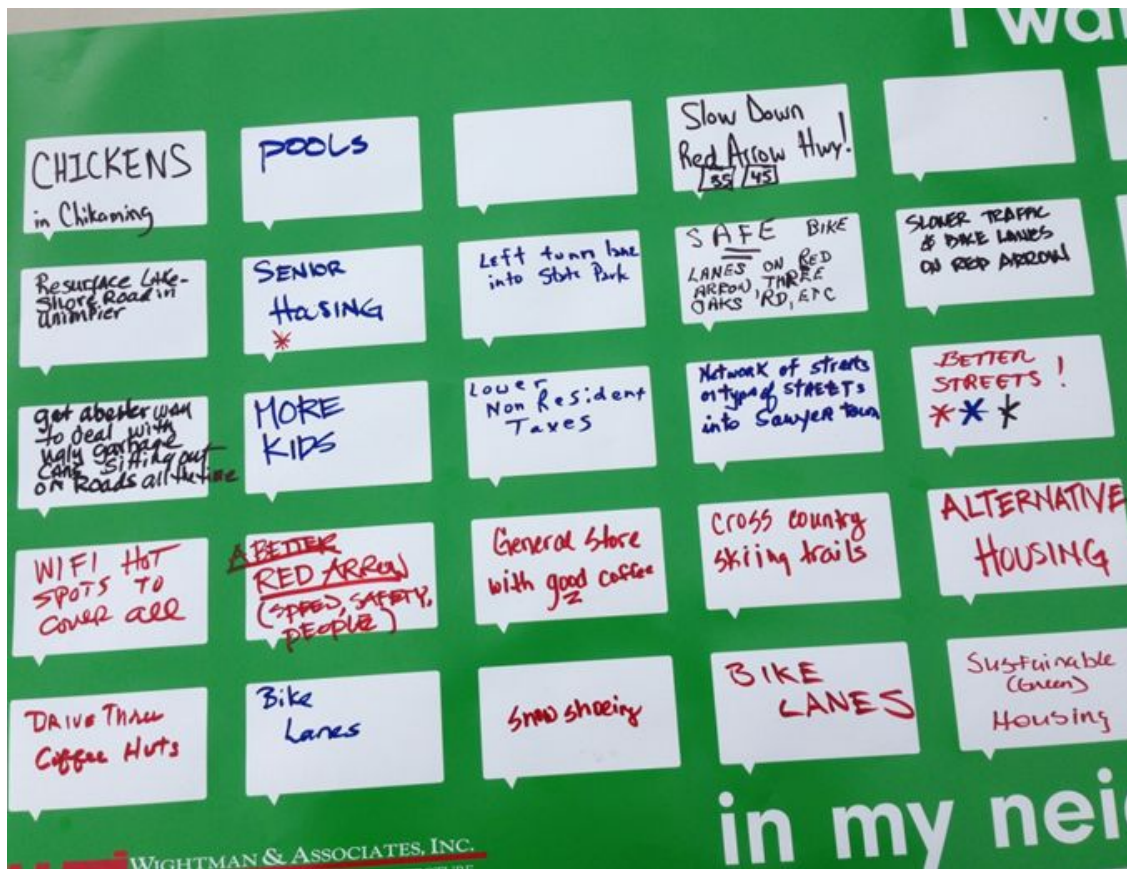 I wa
CHICKENS
in Chikaming
POOLS
Slow Down
Red Arrow Hwy!
35 45
Resurface Lake-
Shore Road in
SENIOR
HOUSING
*
Left turn lane
into State Park
SAFE BIKE
LANES ON RED
ARROW, THREE
OAKS RD, ETC
SLOWER TRAFFIC
& BIKE LANES
ON RED ARROW
get a better way
to deal with
ugly garbage
cans sitting out
on Roads all the time
MORE
KIDS
Lower
Non Resident
Taxes
Network of streets
or type of STREETS
into Sawyer town
BETTER
STREETS !
* * *
WIFI HOT
SPOTS TO
COVER ALL
A BETTER
RED ARROW
(SPEED, SAFETY,
PEOPLE)
General Store
with good coffee
cross country
skiing trails
ALTERNATIVE
HOUSING
DRIVE THRU
Coffee Huts
Bike
Lanes
Snow shoeing
BIKE
LANES
Sustainable
(Green)
Housing
in my nei
WIGHTMAN & ASSOCIATES, INC.